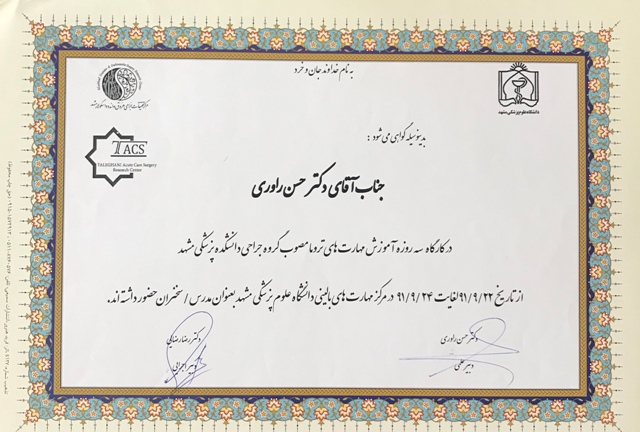 به نام خداوند جان و خرد
دانشگاه علوم پزشکی مشهد
TACS
TALEGHANI Acute Care Surgery
Research Center
بدینوسیله گواهی می شود :
جناب آقای دکتر حسن راوری
در کارگاه سه روزه آموزش مهارت های تروما مصوب گروه جراحی دانشکده پزشکی مشهد
از تاریخ ۹۱/۹/۲۲ لغایت ۹۱/۹/۲۴ در مرکز مهارت های بالینی دانشگاه علوم پزشکی مشهد بعنوان مدرس / سخنران حضور داشته اند.
دکتر حسن راوری
دبیر علمی
دکتر رضا رضایی
دبیر اجرایی